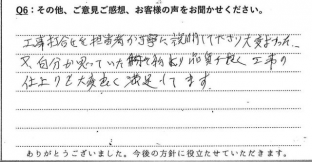 Q6：その他、ご意見ご感想、お客様の声をお聞かせください。
工事打合せを担当者が丁寧に説明して下さり大変よかった。
又、自分が思っていた より品質が良く工事の
仕上りも大変良く満足してます。
ありがとうございました。今後の方針に役立たせていただきます。